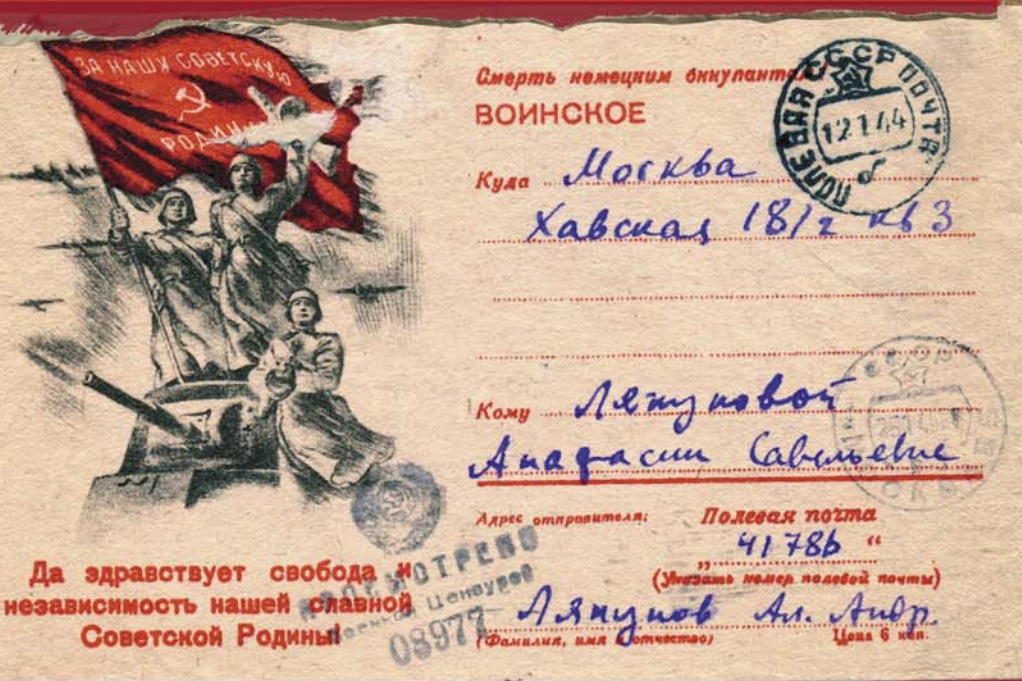 ЗА НАШУ СОВЕТСКУЮ
РОДИНУ
Смерть немецким оккупантам
ВОИНСКОЕ
ПОЛЕВАЯ ПОЧТА СССР
12 1 44
б
Куда Москва
Хавская 18/2 кв 3
Кому Ляпуновой
Савельевне
Адрес отправителя: Полевая почта
„ 41786 “
(Указать номер полевой почты)
Ляпунов Ал. Андр.
(Фамилия, имя и отчество) Цена 6 коп.
Да здравствует свобода и
независимость нашей славной
Советской Родины!
ПРОСМОТРЕНО
Военной Цензурой
08977